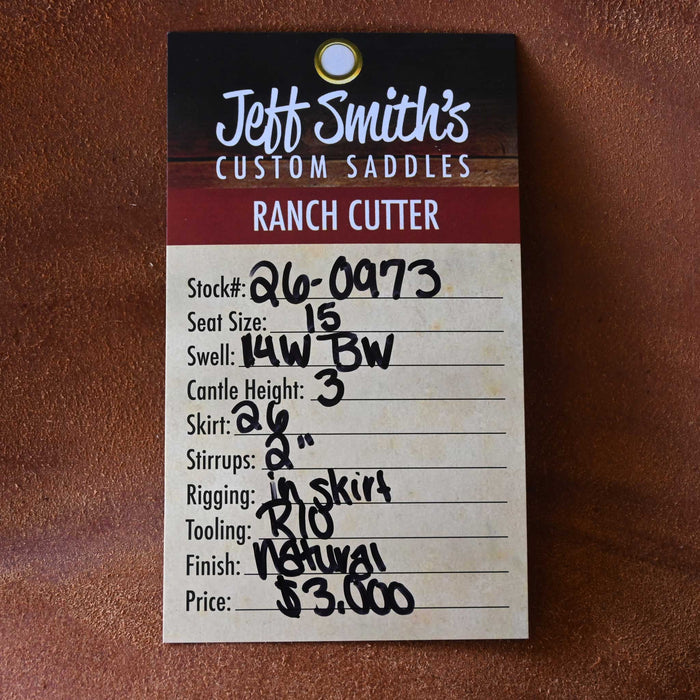 Jeff Smith's
CUSTOM SADDLES
RANCH CUTTER
Stock#: 26-0973
Seat Size: 15
Swell: 14W BW
Cantle Height: 3
Skirt: 26
Stirrups: 2"
Rigging: in skirt
Tooling: R10
Finish: natural
Price: $3.000